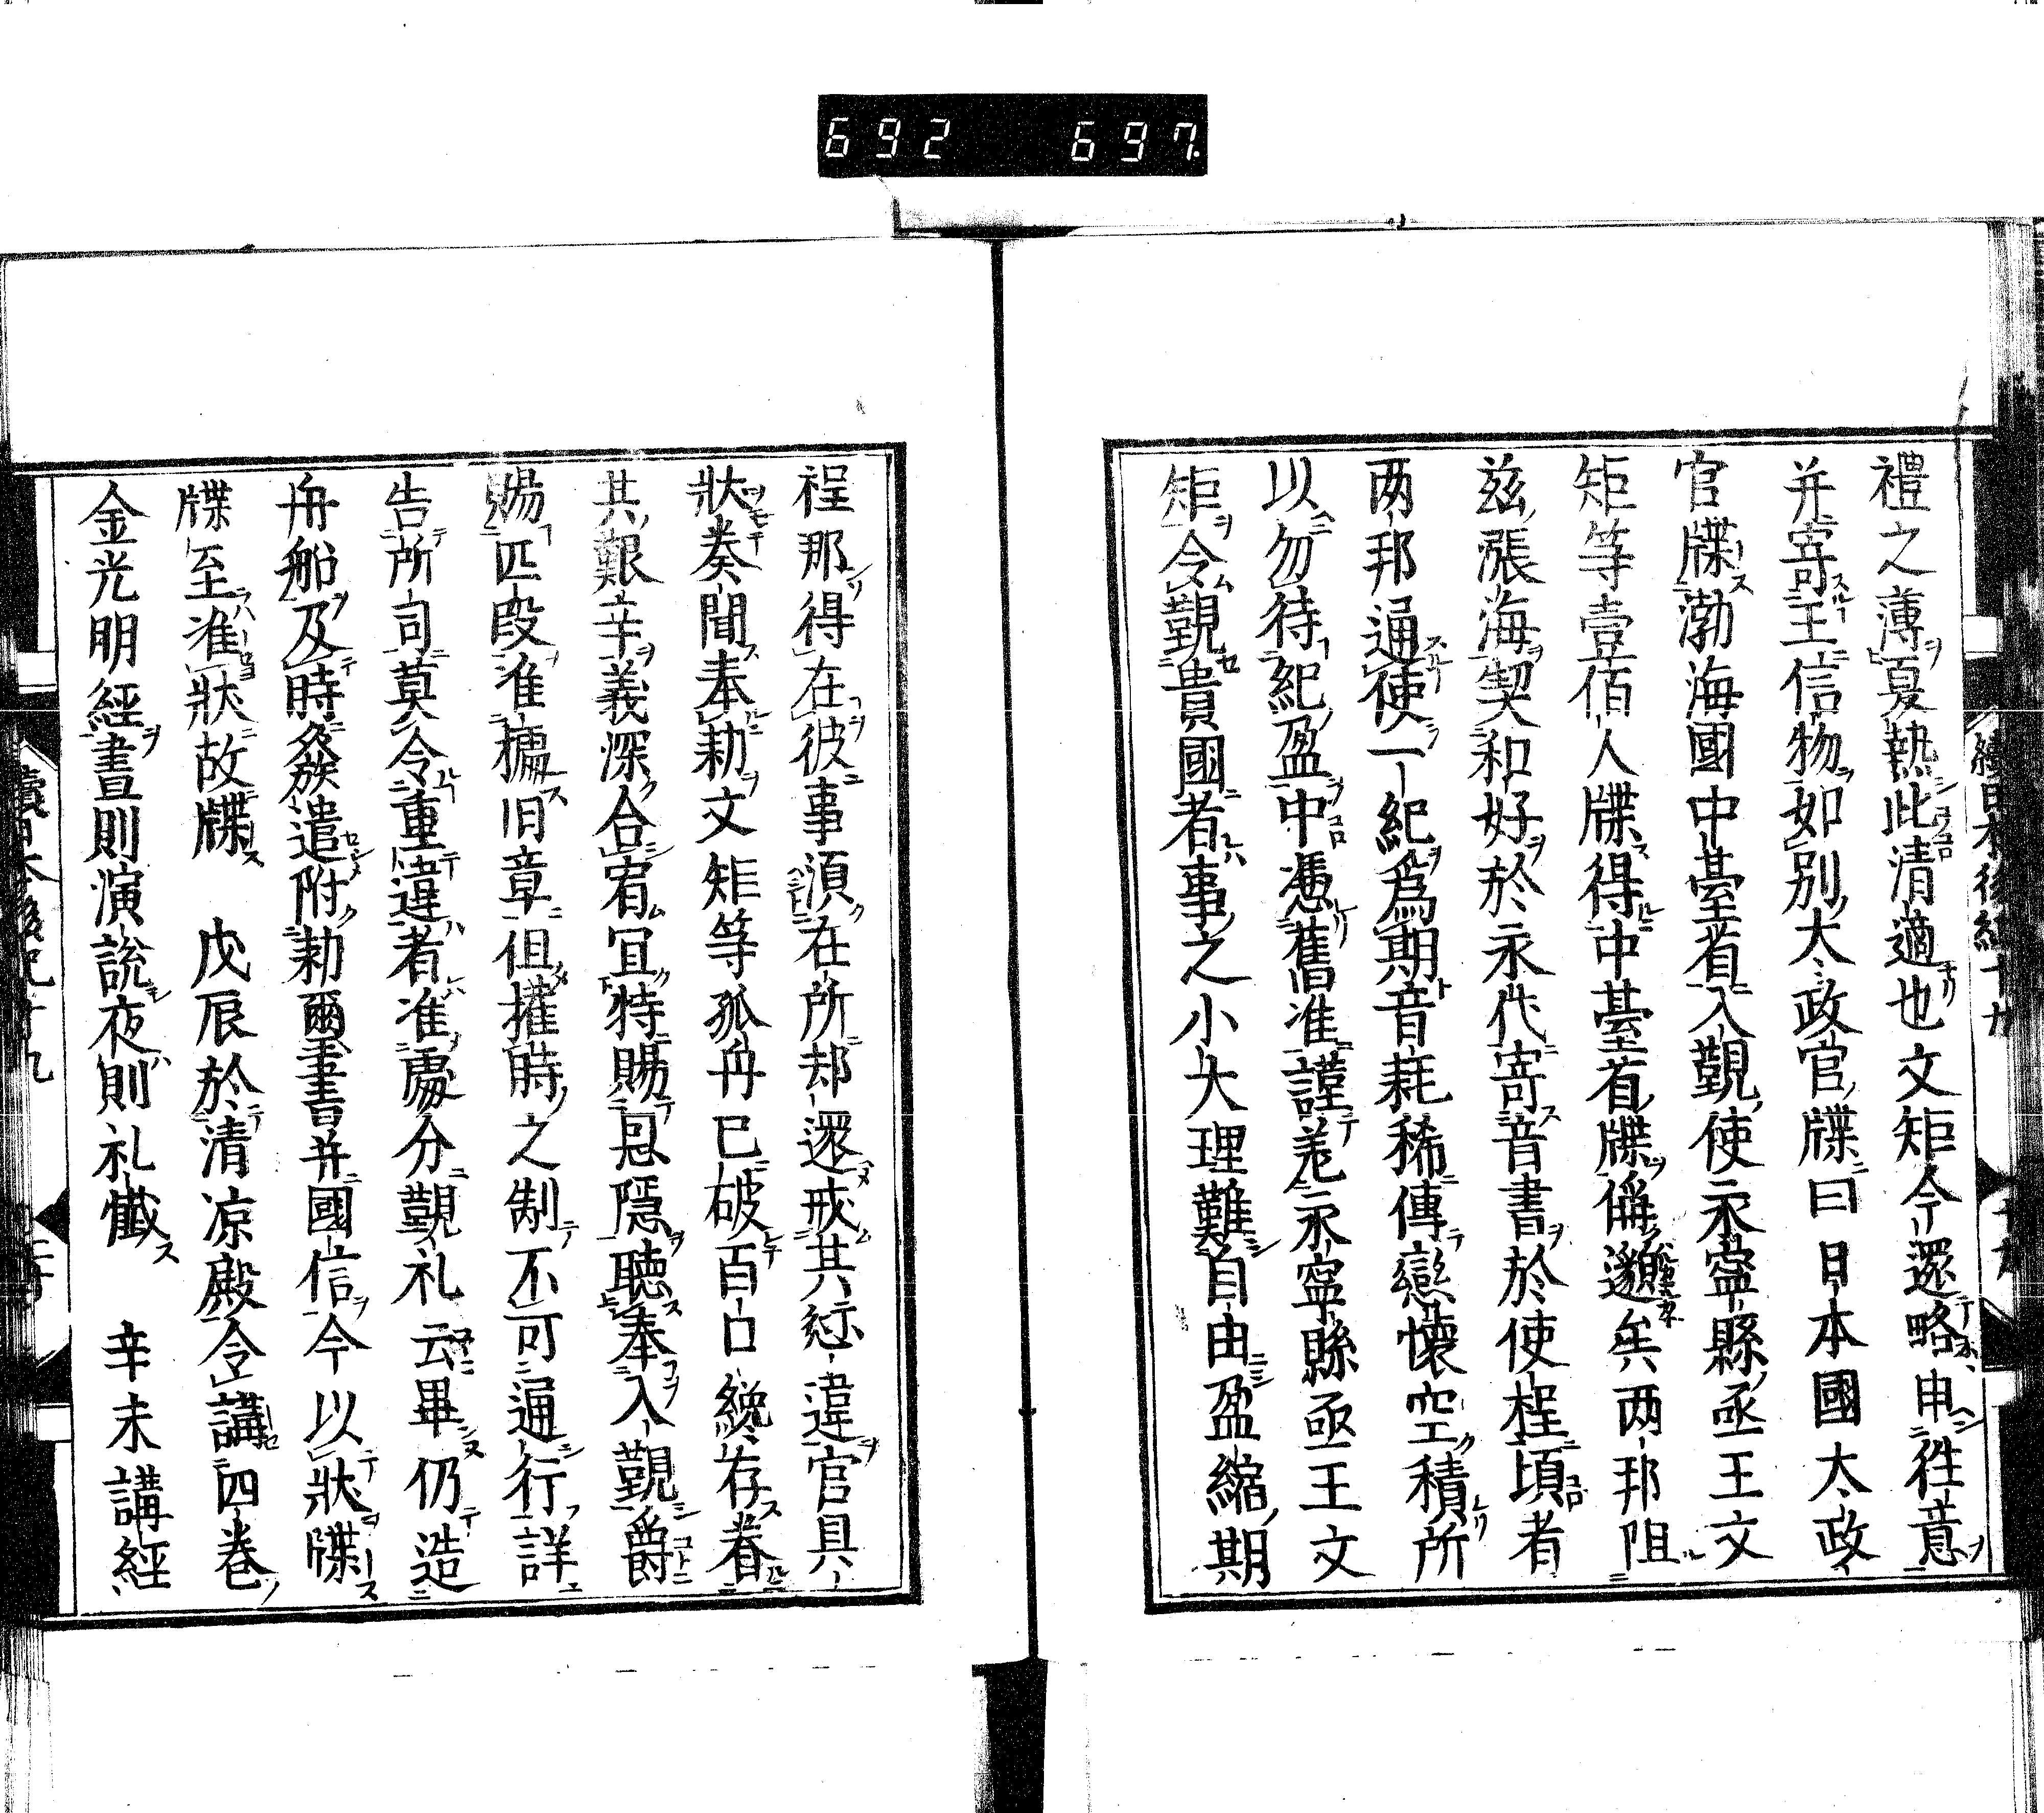 692 697
禮之薄夏熱此清適也文矩今還略申徃意
并寄王信物如別太政官牒曰日本國太政
官牒渤海國中臺省入覲使永寧縣丞王文
矩等壹佰人牒得中臺省牒偁邈矣两邦阻
兹漲海契和好於永代寄音書於使程頃者
两邦通使一紀爲期音耗稀傳戀懐空積所
以勿待紀盈中憑舊准謹差永寧縣丞王文
矩令覲貴國者事之小大理難自由盈縮期
程那得在彼事須在所却還戒其愆違官具
狀奏聞奉勑文矩等孤舟已破百口纔存眷
其艱辛義深合宥宜特賜恩隱聽奉入覲爵
賜匹段准據旧章但權時之制不可通行詳
告所司莫令重違者准處分覲礼云畢仍造
舟船及時發遣附勑璽書并國信今以狀牒
牒至准狀故牒　戊辰於清凉殿令講四巻
金光明經晝則演說夜則礼懺　辛未講經
續日本後紀十九